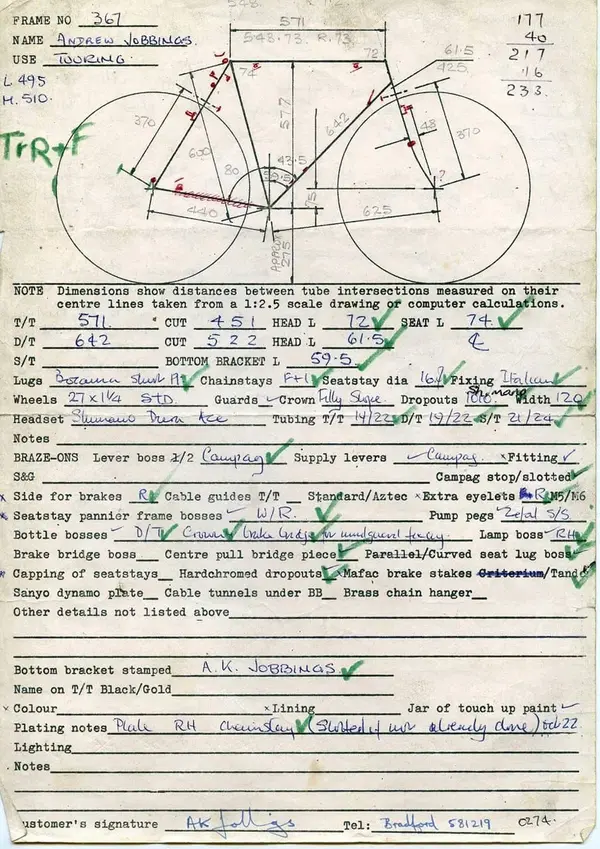 548.
FRAME NO 367
571
177
NAME ANDREW JOBBINGS.
548.73. R.73
40
USE TOURING.
72
61.5
217
L 495
74
425
16
M. 510.
233.
577
370
642
48
370
TrR+F
600
43.5
80
59.5
?
75
440
625
275
NOTE Dimensions show distances between tube intersections measured on their
centre lines taken from a 1:2.5 scale drawing or computer calculations.
T/T 571. CUT 451 HEAD L 72 SEAT L 74
D/T 642 CUT 522 HEAD L 61.5
S/T BOTTOM BRACKET L 59.5
Lugs Bocama Short Chainstays F+1 Seatstay dia 16 Fixing Italian
Wheels 27 x 1¼ STD. Guards Crown Fully Slope. Dropouts Shimano Width 120
Headset Shimano Dura Ace Tubing T/T 19/22 D/T 19/22 S/T 21/24
Notes
BRAZE-ONS Lever boss 1/2 Campag Supply levers Campag. Fitting
S&G Campag stop/slotted
x Side for brakes R Cable guides T/T Standard/Aztec x Extra eyelets R M5/M6
x Seatstay pannier frame bosses W/R. Pump pegs Zefal S/S
Bottle bosses D/T Crown brake bridge for mudguard Lamp boss RH
Brake bridge boss Centre pull bridge piece Parallel/Curved seat lug boss
x Capping of seatstays Hardchromed dropouts x Mafac brake stakes Criterium/Tand
Sanyo dynamo plate Cable tunnels under BB Brass chain hanger
Other details not listed above
Bottom bracket stamped A.K. JOBBINGS.
Name on T/T Black/Gold
x Colour x Lining Jar of touch up paint
Plating notes Plate RH Chainstay (Slotted if not already done) oct 22
Lighting
Notes
ustomer's signature AK Jobbings Tel: Bradford 581219 0274.